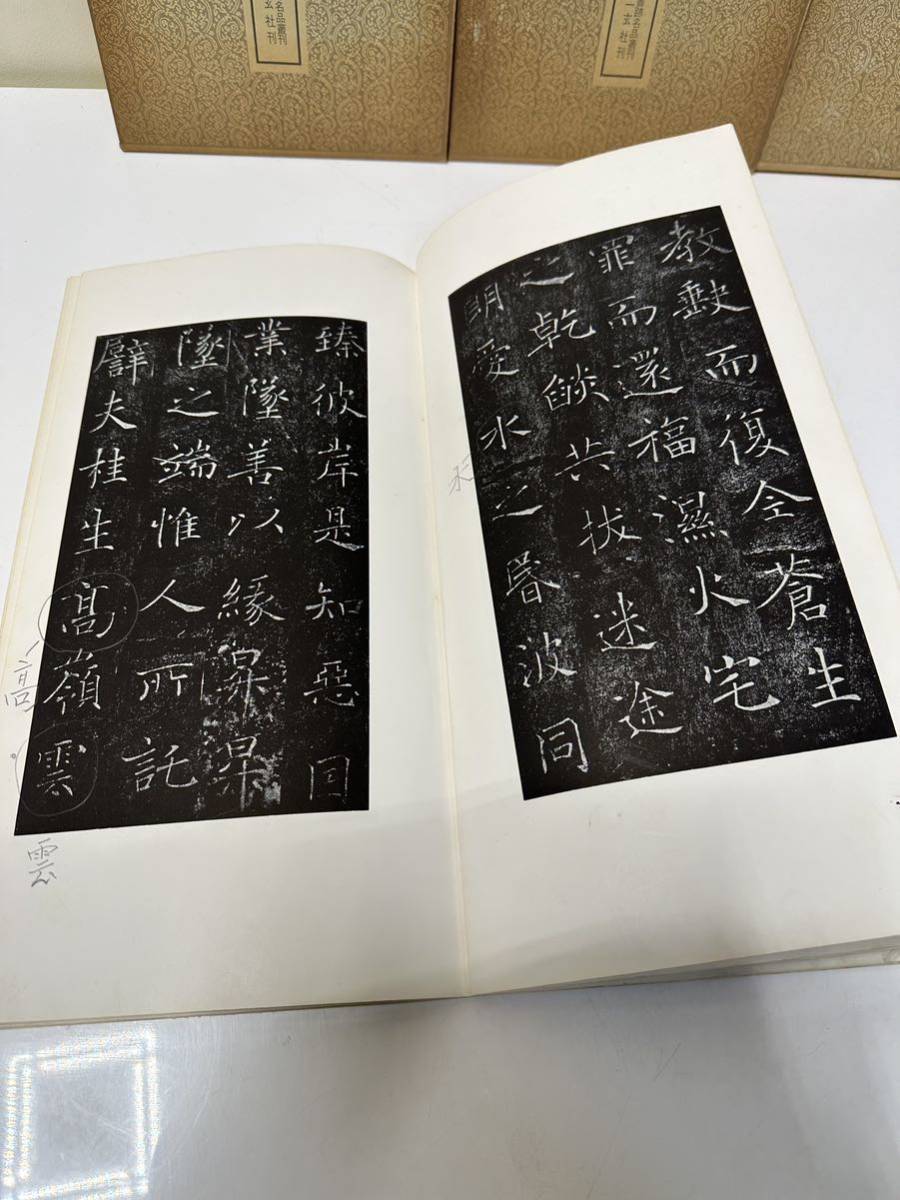 名品叢刊
玄社刊
跡名品叢刊
二玄社刊
教缺而復全蒼生
罪而還福濕火宅
之乾燄共拔迷途
朗愛水之昬波同
臻彼岸是知惡囙
業墜善以緣昇昇
墜之端惟人所託
譬夫桂生髙嶺雲
水
高
雲